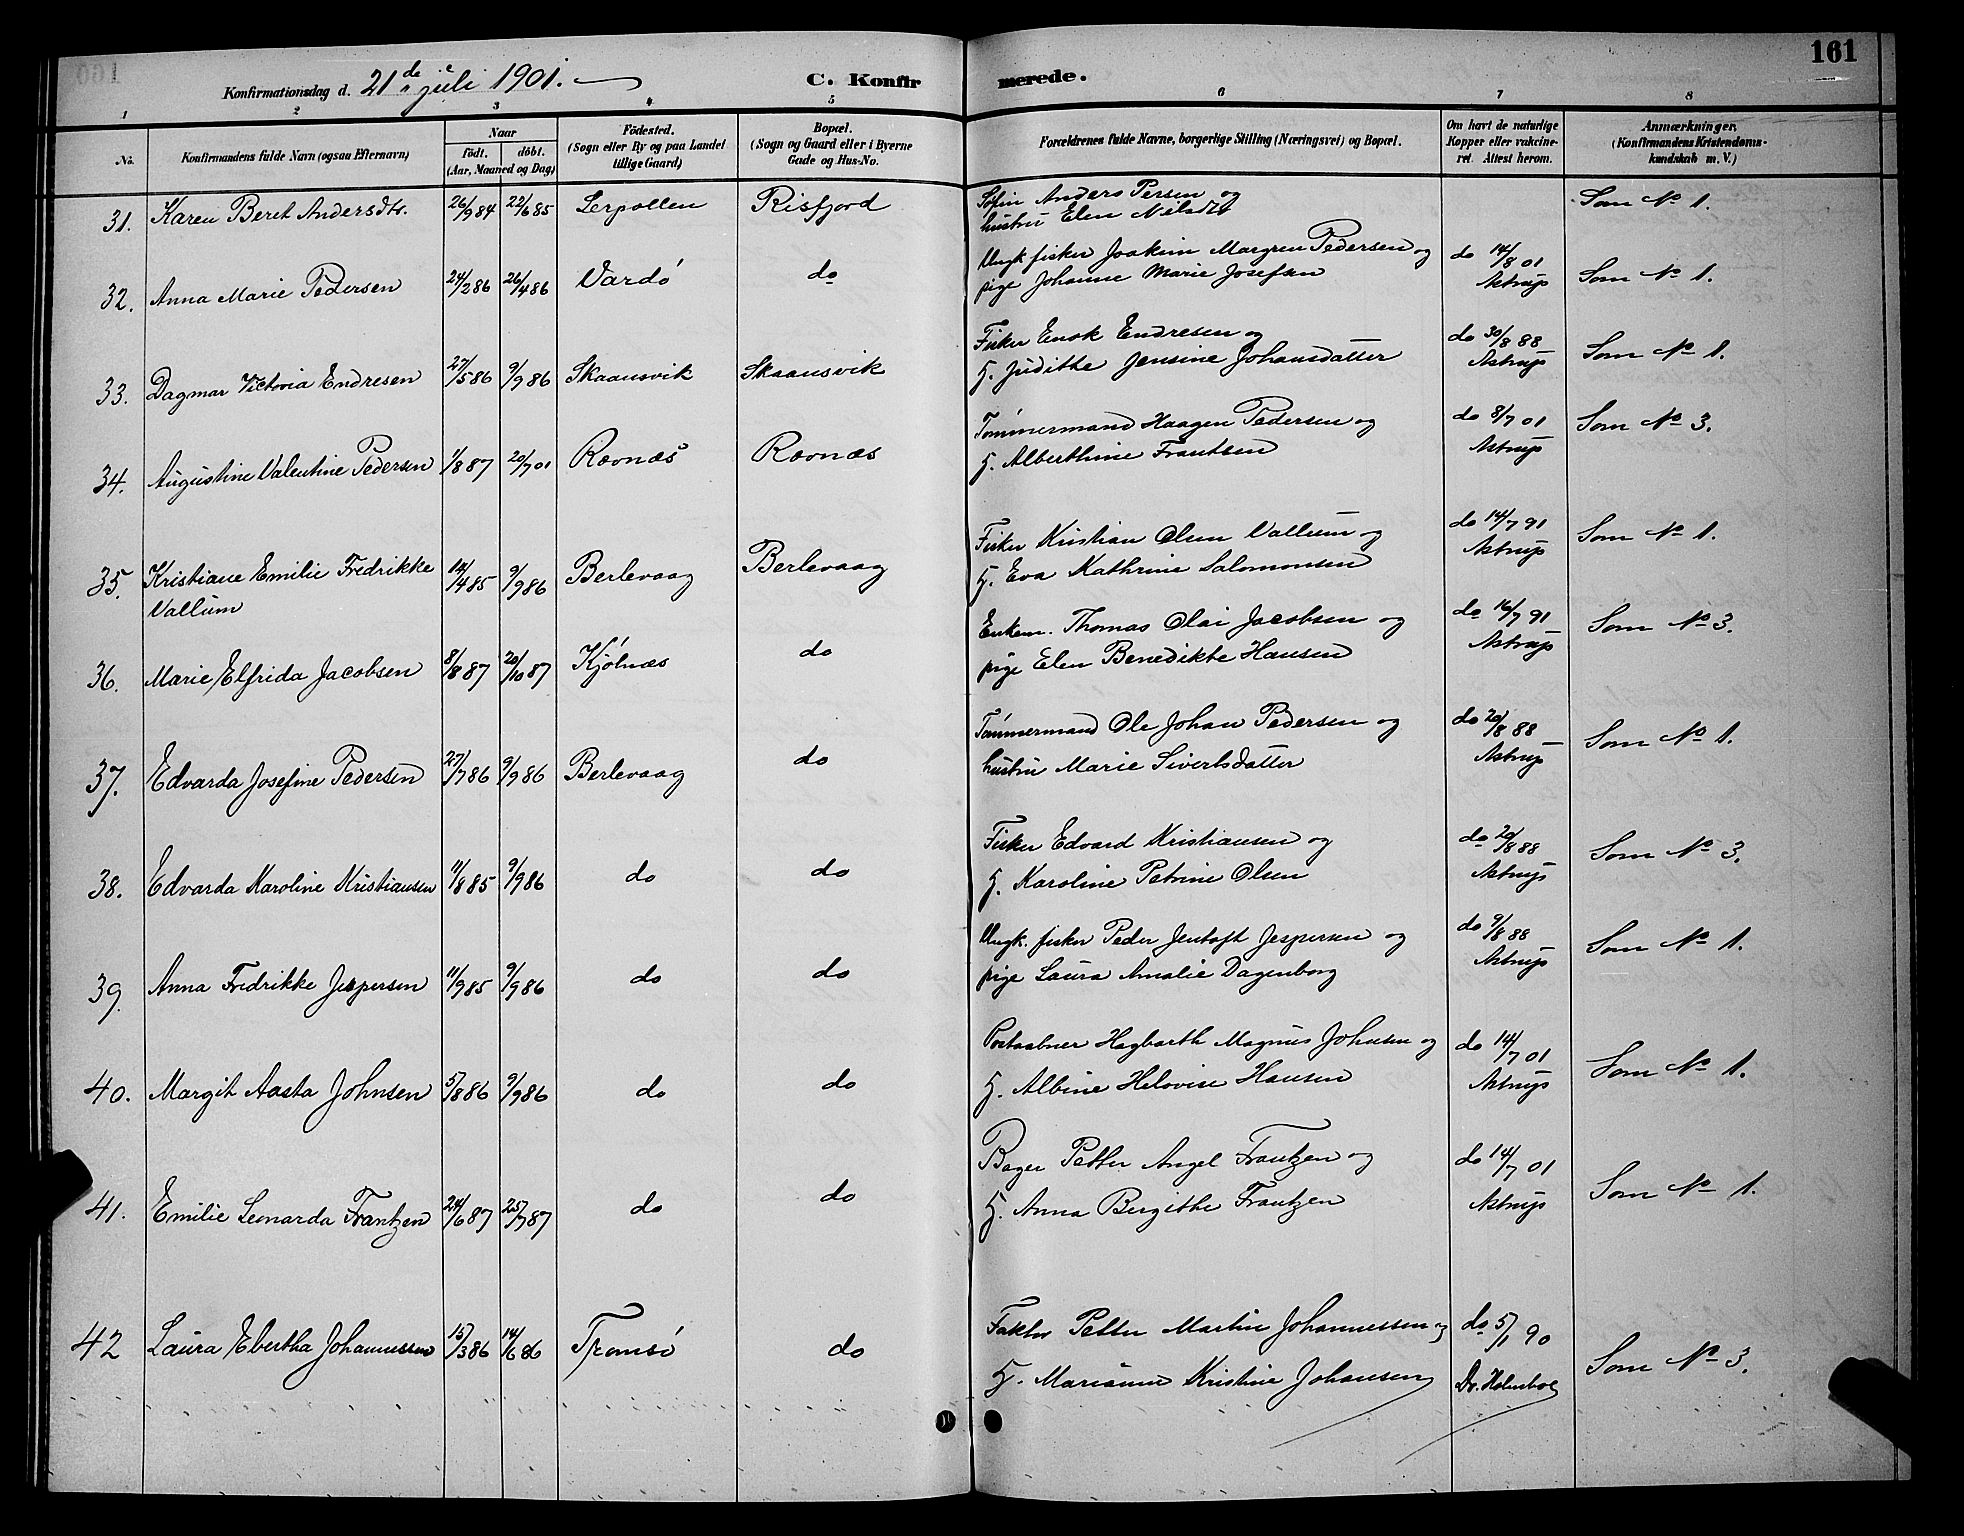 161
Konfirmationsdag d. 21de juli 1901.
C. Konfirmerede.
1 2 3 4 5 6 7 8
No.
Konfirmandens fulde Navn (ogsaa Efternavn)
Naar
födt. döbt.
(Aar, Maaned og Dag)
Födested.
(Sogn eller By og paa Landet
tillige Gaard)
Bopæl.
(Sogn og Gaard eller i Byerne
Gade og Hus-No.
Forældrenes fulde Navne, borgerlige Stilling (Næringsvei) og Bopæl.
Om havt de naturlige
Kopper eller vakcine-
ret. Attest herom.
Anmærkninger.
(Konfirmandens Kristendoms-
kundskab m. V.)
31. Karen Beret Andersdtr. 26/9 84 22/6 85 Lerpollen Risfjord Søfin Anders Persen og Som No 1.
hustru Elen Nilsdtr
32. Anna Marie Pedersen 24/2 86 26/4 86 Vardö do Ungk fisker Joakim Margren Pedersen og do 14/8 01 Som No 1.
pige Johanne Marie Josefsen Astrup
33. Dagmar Victoria Endresen 27/5 86 9/9 86 Skaansvik Skaansvik Fisker Enok Endresen og do 30/8 88 Som No 1.
H. Judithe Jensine Johansdatter Astrup
34. Augustine Valentine Pedersen 1/8 87 20/7 01 Rovnæs Rovnæs Tømmermand Haagen Pedersen og do 8/7 01 Som No 3.
H. Alberthine Frantsen Astrup
35. Kristiane Emilie Fredrikke 14/4 85 9/9 86 Berlevaag Berlevaag Fisker Kristian Olsen Vallum og do 14/7 91 Som No 1.
Vallum H. Eva Kathrine Salomonsen Astrup
36. Marie Elfrida Jacobsen 8/8 87 20/10 87 Kjölnæs do Enkem. Thomas Olai Jacobsen og do 16/7 91 Som No 3.
pige Elen Benedikte Hansen Astrup
37. Edvarda Josefine Pedersen 27/7 86 9/9 86 Berlevaag do Tømmermand Ole Johan Pedersen og do 20/8 88 Som No 1.
hustru Marie Sivertsdatter Astrup
38. Edvarda Karoline Kristiansen 11/8 85 9/9 86 do do Fisker Edvard Kristiansen og do 20/8 88 Som No 3.
H. Karoline Petrine Olsen Astrup
39. Anna Fredrikke Jespersen 11/9 85 9/9 86 do do Ungk. fisker Peder Jentoft Jespersen og do 9/8 88 Som No 1.
pige Laura Amalie Dagenborg Astrup
40. Margit Aasta Johnsen 5/8 86 9/9 86 do do Postaabner Hagbarth Magnus Johnsen og do 14/7 01 Som No 1.
H. Albine Helovise Hansen Astrup
41. Emilie Leonarda Frantzen 24/6 87 25/7 87 do do Bager Petter Angel Frantzen og do 14/7 01 Som No 1.
H. Anna Bergithe Frantzen Astrup
42 Laura Ebertha Johannessen 15/3 86 14/6 86 Tromsö do Faktor Petter Martin Johannessen og do 5/1 90 Som No 3.
H. Marianne Kristine Johansen Dr. Holmboe